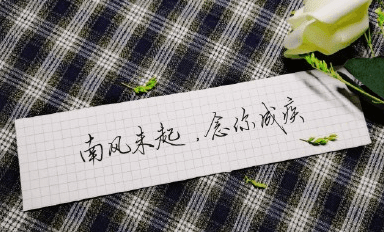 南风未起，念你成疾